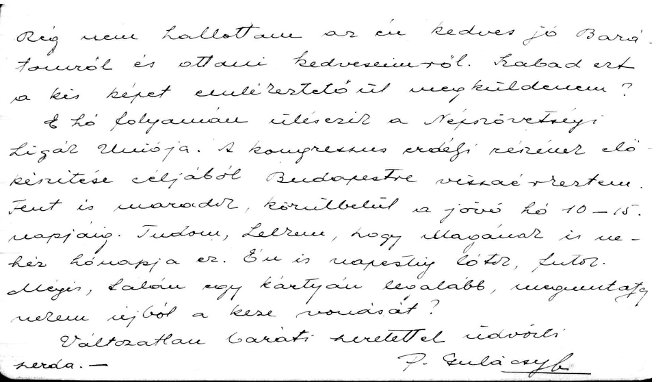 Rég nem hallottam az én kedves jó Bará-
tomról és ottani kedveseimről. Szabad ezt
a kis képet emlékeztetőül megküldenem?
E hó folyamán ülésezik a Népszövetségi
Ligák Uniója. A kongresszus erdélyi részének elő-
készitése céljából Budapestre visszaérkeztem.
Fent is maradok, körülbelül a jövő hó 10-15.
napjáig. Tudom, Lelkem, hogy Magának is ne-
héz hónapja ez. Én is napestig lótok, futok.
Mégis, talán egy kártyán legalább, megmutatja
nekem ujból a keze vonását?
Változatlan baráti szeretettel üdvözli
szerda. —
P. Gulácsy